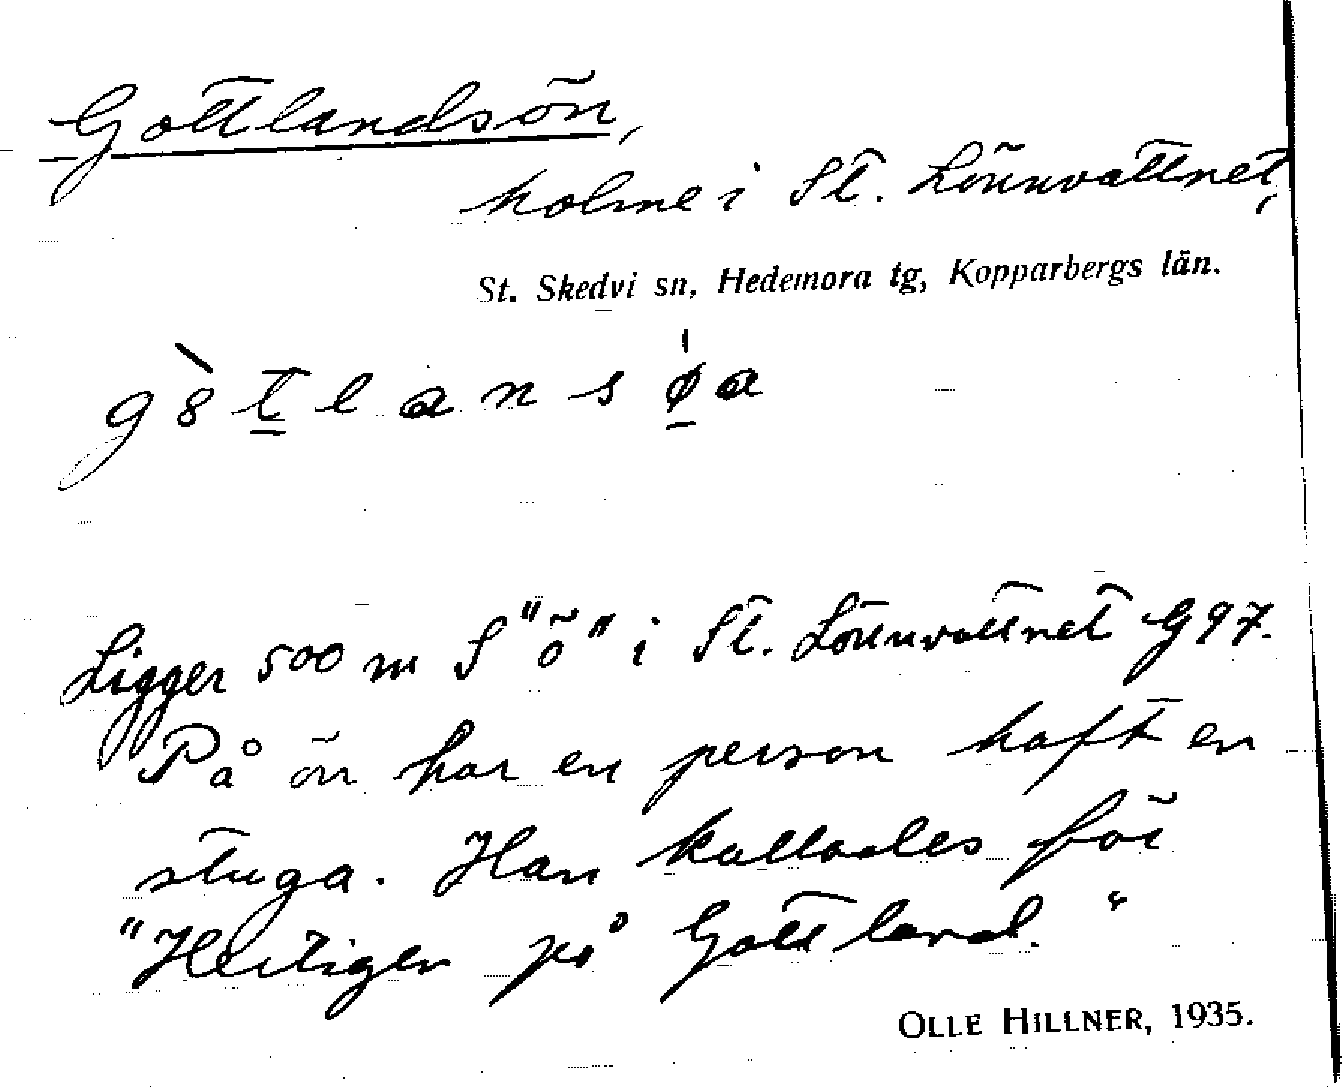 Gottlandsön,
holme i St. Lönnvattnet,
St. Skedvi sn, Hedemora tg, Kopparbergs län.
Ligger 500 m S "ö" i St. Lönnvattnet G97.
På ön har en person haft en
stuga. Han kallades för
"Hertigen på Gottland."
OLLE HILLNER, 1935.